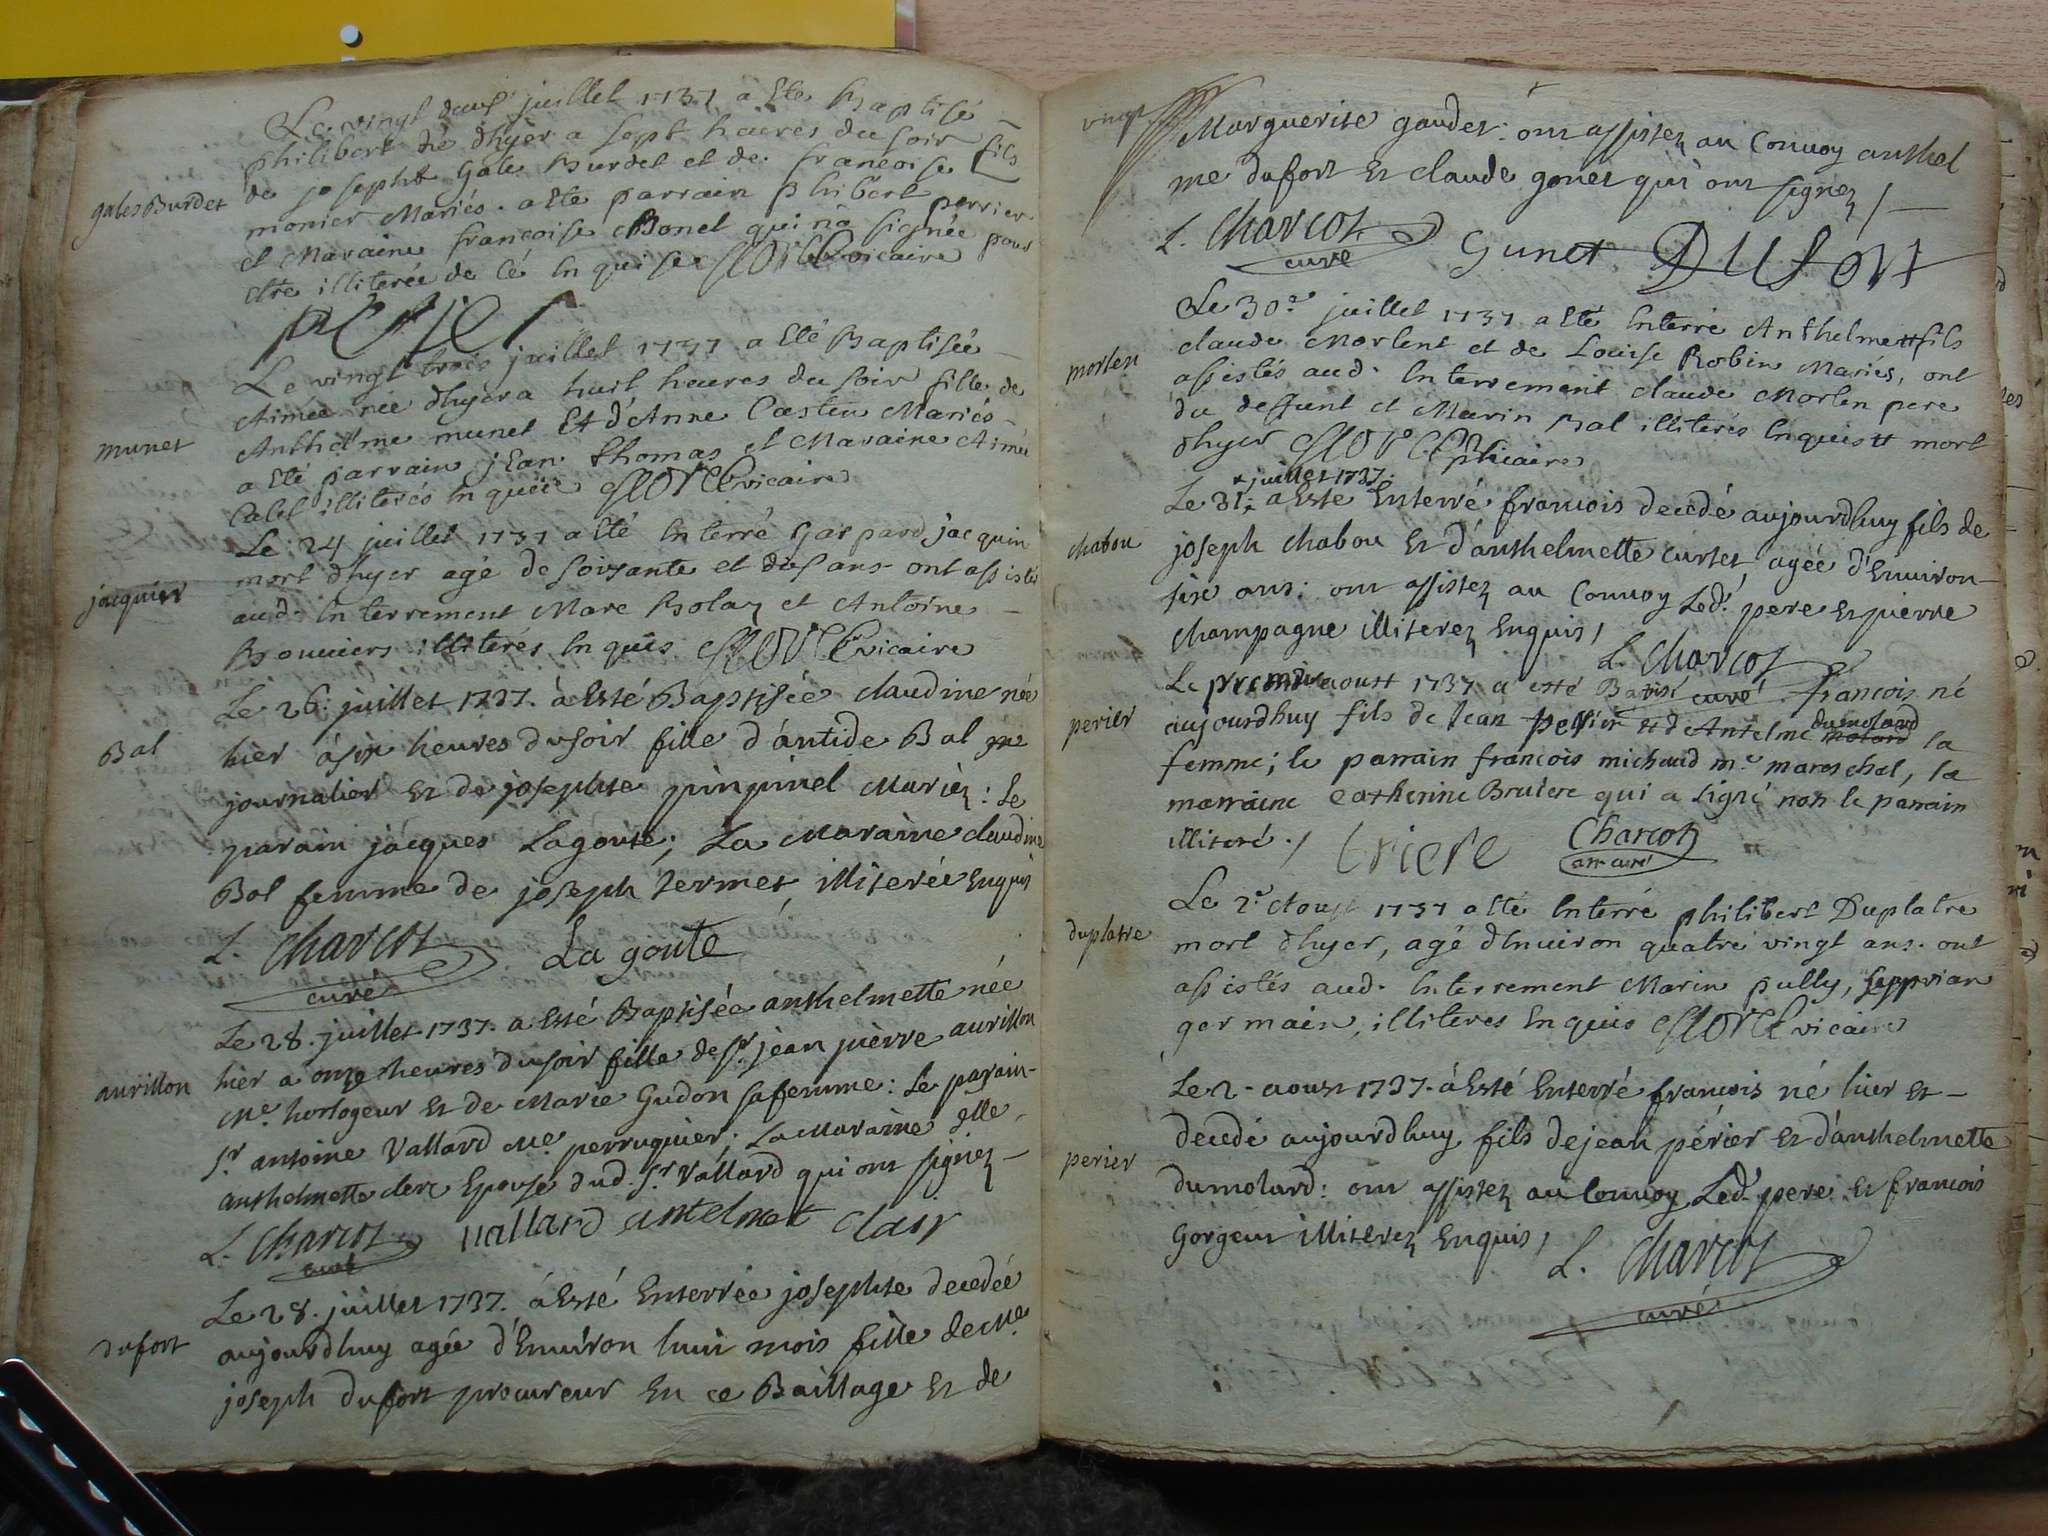 Le vingt deux juillet 1737 a ete Baptisé
philibert né dhyer a sept heures du soir fils
galesBurdet
de joseph Gales Burdet et de francoise
monier Mariés. a ete parrain philibert perrier
et Maraine francoise Bonet qui n'a signée pour
etre illiterée de ce In quise vicaire
perier
Le vingt trois juillet 1737 a eté Baptisée
Aimée née dhyer a huit heures du soir fille de
munet
Anthelme munet Et d'Anne Castin Mariés
a eté parrain jean thomas et Maraine Aimée
Calet illiterés In quéré vicaire
Le 24 juillet 1737 a eté Interré Gaspard jacquin
jacquier
mort dhyer agé de soixante et dix ans ont assistés
aud. Interrement Marc Bolaz et Antoine
Bouviers illiterés In quis vicaire
Le 26. juillet 1737. a Esté Baptisée claudine née
Bal
hier á six heures du soir fille d'antide Bal
journalier Et de josephte pinpinel Mariez: Le
parain jácques Lagoute; La Maraine claudine
Bal femme de joseph Jermet illiterée Enquis
L. Charcot La goute
curé
Le 28. juillet 1737. a Esté Baptisée anthelmette née
hier a onze heures du soir fille de Sr. jean pierre aurillon
aurillon
Me. horlogeur Et de Marie Gudon sa femme: Le parain
Sr. antoine Vallard Me. perruquier; La Maraine
anthelmette clerc Epouse dud. Sr. Vallard qui ont signez
L. Charcot vallard antelmet clair
curé
Le 28. juillet 1737. á Esté Enterrée josephte decedée
dufort
aujourdhuy agée d'Environ huit mois fille de Me.
joseph dufort procureur En ce Baillage Et de
Marguerite gaudet: ont assistez au Convoy anthel
me dufort Et claude gonet qui ont signez
L. Charcot Gunet DUfort
curé
Le 30e juillet 1737 a eté Interré Anthelme fils
morten
claude Morlent et de Louise Robin Mariés, ont
assistés aud. Interrement claude Morlen pere
du deffunt et Marin Bal illiterés Inquis mort
dhyer vicaire
juillet 1737.
Le 31. a Esté Enterré francois decedé aujourdhuy fils de
chabou
joseph chabou Et d'anthelmette curtet agéé d'Environ
six ans: ont assistez au Convoy Led. pere Et pierre
champagne illiterez Enquis,
L. Charcot
curé
Le premier aoust 1737 a esté Batisé francois né
perier
aujourdhuy fils de Jean perier et d'Antelme dumolard la
femme; le parrain francois michaud me. mareschal, la
marraine Catherine Brutere qui a signé non le parrain
illiteré. / Charcot
arr curé
Le 2e Aoust 1737 a eté Interré philibert Duplatre
duplatre
mort dhyer, agé dInviron quatre vingt ans. ont
assistés aud. Interrement Marin pully,
germain, illiteres In quis vicaire
Le 2. aoust 1737. á Esté Enterré francois né hier Et
decedé aujourdhuy fils de jean périer Et d'anthelmette
perier
dumolard: ont assistez au Convoy Led. pere Et francois
Gorgeur illiterez Enquis,
L. Charcot
curé